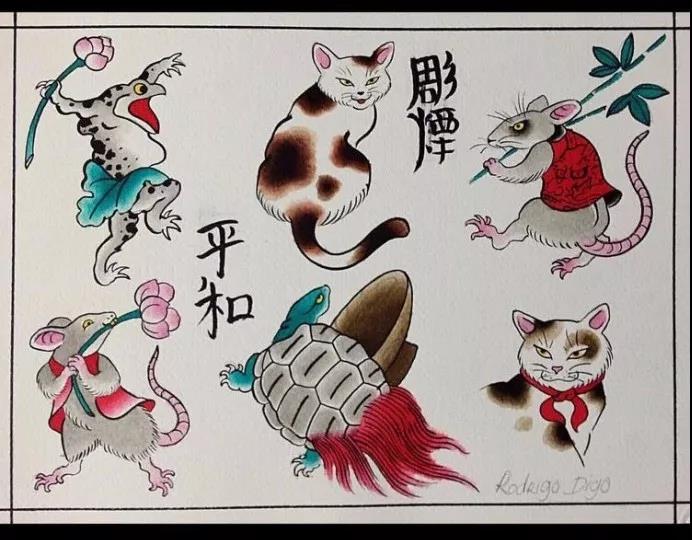 彫
平和
Rodrigo Digo